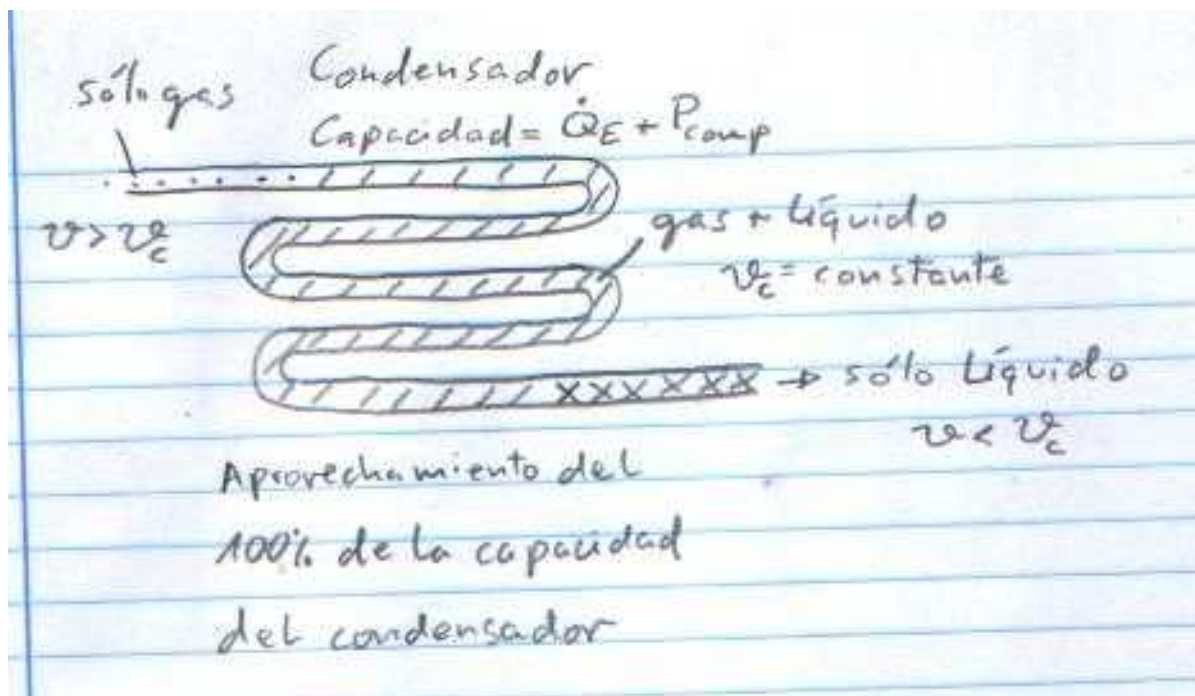 Condensador
sólo gas
Capacidad = Q̇E + Pcomp
v > vc
gas + Líquido
vc = constante
xxxxxxx → sólo Líquido
v < vc
Aprovechamiento del
100% de la capacidad
del condensador